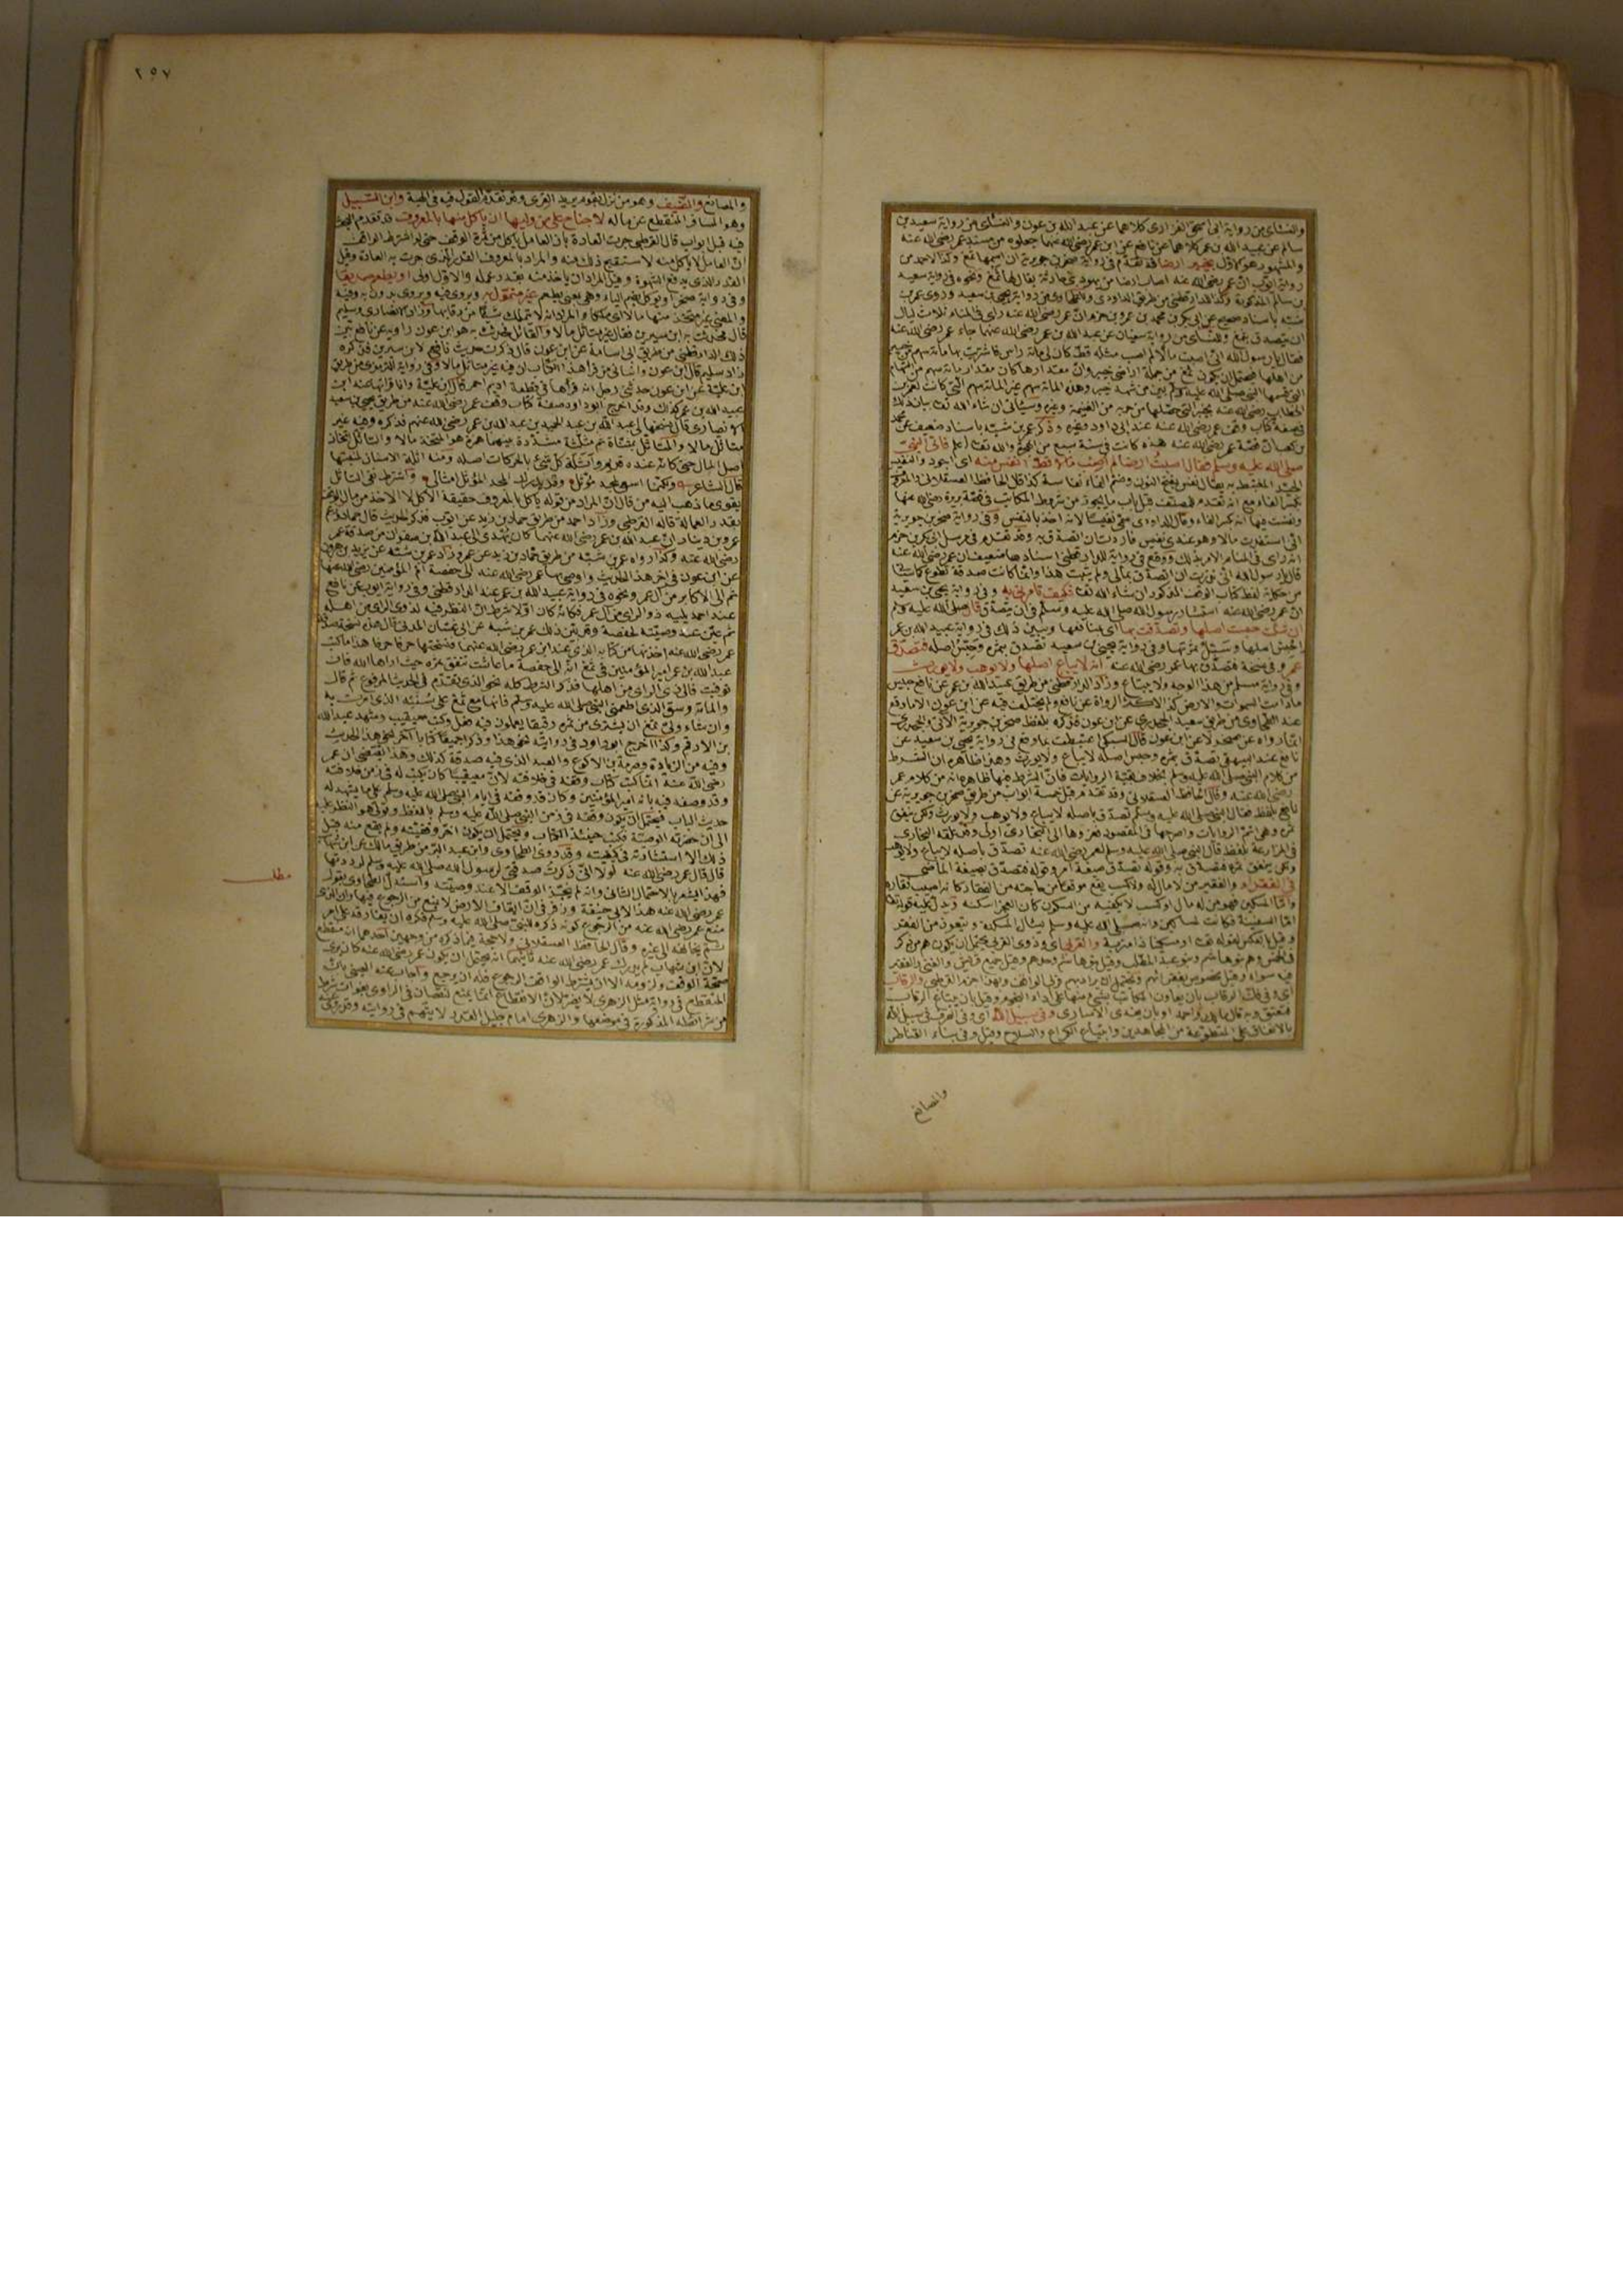 والنسائي من رواية ابي اسحق الفزاري كلاهما عن عبد الله بن عون والنسائي من رواية سعيد بن
سالم عن عبيد الله بن عمر كلاهما عن نافع عن ابن عمر رضي الله عنهما جعلوه من مسند عمر رضي الله عنه
والمشهور هو الاول بخيبر ارضا قد تقدم في رواية صخر بن جويرية ان اسمها ثمغ وكذا لاحمد من
رواية ايوب ان عمر رضي الله عنه اصاب ارضا من يهود بني حارثة يقال لها ثمغ ونحوه في رواية سعيد
بن سالم المذكورة وكذا للدارقطني من طريق الداودي وروى عمر بن
شبه باسناد صحيح عن ابي بكر بن محمد بن عمرو بن حزم ان عمر رضي الله عنه رأى في المنام ثلاث ليال
ان يتصدق بثمغ وللنسائي من رواية سفيان عن عبد الله بن عمر رضي الله عنهما جاء عمر رضي الله عنه
فقال يا رسول الله اني اصبت مالا لم اصب مثله قط كان لي مائة راس فاشتريت بها مائة سهم من خيبر
من اهلها فيحتمل ان يكون ثمغ من جملة اراضي خيبر وان مقدارها كان مقدار مائة سهم من السهام
التي قسمها النبي صلى الله عليه وسلم بين من شهد خيبر وهذه المائة سهم غير المائة سهم التي كانت لعمر بن
الخطاب رضي الله عنه بخيبر التي حصلها من جزئه من الغنيمة وغيره وسيأتي ان شاء الله تعالى بيان ذلك
في صفة كتاب وقف عمر رضي الله عنه عند ابي داود وغيره وذكر عمر بن شبه باسناد ضعيف عن محمد
بن كعب ان قصة عمر رضي الله عنه هذه كانت في سنة سبع من الهجرة والله تعالى اعلم فاتى النبي
صلى الله عليه وسلم فقال اصبت ارضا لم اصب مالا قط انفس منه اي اجود والنفيس
الجيد المغتبط به يقال نفس بفتح النون وضم الفاء نفاسة كذا قال الحافظ العسقلاني
اني استفدت مالا وهو عندي نفيس فاردت ان اتصدق به وقد تقدم في مرسل ابي بكر بن حزم
انه رأى في المنام الامر بذلك ووقع في رواية للدارقطني اسنادها ضعيف ان عمر رضي الله عنه
قال يا رسول الله اني نذرت ان اتصدق بمالي ولم يثبت هذا وانما كانت صدقة تطوع كما سيأتي
من حكاية لفظ كتاب الوقف المذكور ان شاء الله تعالى فكيف تأمرني به وفي رواية يحيى بن سعيد
ان عمر رضي الله عنه استشار رسول الله صلى الله عليه وسلم في ان يتصدق قال صلى الله عليه وسلم
ان شئت حبست اصلها وتصدقت بها اي بمنافعها ويبين ذلك في رواية عبيد الله بن عمر
احبس اصلها وسبل ثمرتها وفي رواية يحيى بن سعيد تصدق بثمره وحبس اصله فتصدق
عمر وفي نسخة فتصدق بها عمر رضي الله عنه انه لا يباع اصلها ولا يوهب ولا يورث
وفي رواية مسلم من هذا الوجه ولا يبتاع وزاد الدارقطني من طريق عبيد الله بن عمر عن نافع حبيس
ما دامت السموات والارض كذا لاكثر الرواة عن نافع ولم يختلف فيه عن ابن عون الا ما وقع
عند الطحاوي من طريق سعيد الجحدري عن ابن عون فذكره بلفظ صخر بن جويرية الاتي والجحدري
انما رواه عن صخر لا عن ابن عون قال السبكي اغتبطت بما وقع في رواية يحيى بن سعيد عن
نافع عند البيهقي تصدق بثمره وحبس اصله لا يباع ولا يورث وهذا ظاهره ان الشرط
من كلام النبي صلى الله عليه وسلم بخلاف بقية الروايات فان الشرط فيها ظاهره انه من كلام عمر
رضي الله عنه وقال الحافظ العسقلاني وقد تقدم قبل خمسة ابواب من طريق صخر بن جويرية عن
نافع بلفظ فقال النبي صلى الله عليه وسلم تصدق باصله لا يباع ولا يوهب ولا يورث ولكن ينفق
ثمره وهي اتم الروايات واصرحها في المقصود فعزوها الى البخاري اولى وقد علقه البخاري
في المزارعة بلفظ قال النبي صلى الله عليه وسلم لعمر رضي الله عنه تصدق باصله لا يباع ولا يوهب
ولكن ينفق ثمره فتصدق به وقوله تصدق صيغة امر وقوله فتصدق بصيغة الماضي
في الفقراء والفقير من لا مال له ولا كسب يقع موقعا من حاجته
واما المسكين فهو من له مال او كسب لا يكفيه من السكون كان العجز اسكنه ويدل عليه قوله تعالى
اما السفينة فكانت لمساكين وانه صلى الله عليه وسلم يسأل المسكنة ويتعوذ من الفقر
وقيل بالعكس لقوله تعالى او مسكينا ذا متربة والقربى اي وذوي القربى يحتمل ان يكون هم من ذكر
في الخمس وهم بنو هاشم وبنو عبد المطلب
فيه سواء وبهذا جزم القرطبي والرقاب
اي وفي فك الرقاب بان يعاون المكاتب بشيء منها على اداء النجوم وقيل بان يبتاع الرقاب
فتعتق وبه قال مالك واحمد او بان يفدي الاسارى وفي سبيل الله
بالانفاق على المتطوعة من المجاهدين وابتياع الكراع والسلاح وقيل وفي بناء القناطر
والمصانع
٢٥٧
والمصانع والضيف وهو من نزل بقوم يريد القرى وقد تقدم القول فيه في الهبة وابن السبيل
وهو المسافر المنقطع عن ماله لا جناح على من وليها ان ياكل منها بالمعروف قد تقدم البحث
فيه قبل ابواب قال القرطبي جرت العادة بان العامل يأكل من ثمرة الوقف حتى لو اشترط الواقف
ان العامل لا يأكل منه لاستقبح ذلك منه والمراد بالمعروف القدر الذي جرت به العادة وقيل
القدر الذي يدفع الشهوة وقيل المراد ان يأخذ منه بقدر عمله والاول اولى او يطعم صديقا
وفي رواية صخر او يوكل بضم الياء وهي بمعنى يطعم غير متمول به ويروى فيه ويروى بدون به وفيه
والمعنى غير متخذ منها مالا اي ملكا والمراد انه لا يتملك شيئا من رقابها
قال فحدثت به ابن سيرين فقال غير متأثل مالا والقائل فحدثت به هو ابن عون راويه عن نافع بين
ذلك الدارقطني من طريق ابي اسامة عن ابن عون قال ذكرت حديث نافع لابن سيرين فذكره
زاد سليم قال ابن عون وانبأني من قرأ هذا الكتاب ان فيه غير متأثل مالا وفي رواية للترمذي من طريق
ابن علية عن ابن عون حدثني رجل انه قرأها في قطعة اديم احمر قال ابن علية وانا قرأتها عند ابن
عبيد الله بن عمر كذلك وقد اخرج ابو داود صفة كتاب وقف عمر رضي الله عنه من طريق يحيى بن سعيد
الانصاري قال نسخها لي عبد الله بن عبد الحميد بن عبد الله بن عمر رضي الله عنهم فذكره وفيه غير
متأثل مالا والمتأثل بمثناة ثم مثلثة مشددة بينهما همزة هو المتخذ مالا والتأثل اتخاذ
اصل المال حتى كأنه عنده قديم واثلة كل شيء بالحركات اصله ومنه
قال الشاعر وقد يدرك المجد المؤثل امثالي واشتراط نفي التأثل
يقوي ما ذهب اليه من قال ان المراد من قوله يأكل بالمعروف حقيقة الاكل لا الاخذ من مال الوقف
بقدر العمالة قاله القرطبي وزاد احمد من طريق حماد بن زيد عن ايوب فذكر الحديث قال حماد وزعم
عمرو بن دينار ان عبد الله بن عمر رضي الله عنهما كان يهدي الى عبد الله بن صفوان من صدقة عمر
رضي الله عنه وكذا رواه عمر بن شبه من طريق حماد بن زيد عن عمرو وزاد عمر بن شبه عن يزيد بن هرون
عن ابن عون في اخر هذا الحديث واوصى بها عمر رضي الله عنه الى حفصة ام المؤمنين رضي الله عنها
ثم الى الاكابر من آل عمر ونحوه في رواية عبيد الله بن عمر عند الدارقطني وفي رواية ايوب عن نافع
عند احمد يليه ذوو الرأي من آل عمر فكأنه كان اولا شرط ان النظر فيه لذوي الرأي من اهله
ثم عين عند وصيته لحفصة وقد بين ذلك عمر بن شبه عن ابي غسان المدني قال هذه نسخة صدقة
عمر رضي الله عنه اخذتها من كتابه الذي عند ابن عمر رضي الله عنهما فنسختها حرفا حرفا هذا ما كتب
عبد الله بن عمر امير المؤمنين في ثمغ انه الى حفصة ما عاشت تنفق ثمره حيث اراها الله فان
توفيت فالى ذي الرأي من اهلها فذكر الشرط كله نحو الذي تقدم في الحديث المرفوع ثم قال
والمائة وسق الذي اطعمني النبي صلى الله عليه وسلم فانها مع ثمغ على سننه الذي امرت به
وان شاء ولي ثمغ ان يشتري من ثمره رقيقا يعملون فيه فعل وكتب معيقيب وشهد عبد الله
بن الارقم وكذا اخرج ابو داود في روايته نحو هذا وذكرا جميعا كتابا آخر نحو هذا الحديث
وفيه من الزيادة وصرمة بن الاكوع والعبد الذي فيه صدقة كذلك وهذا يقتضي ان عمر
رضي الله عنه انما كتب كتاب وقفه في خلافته لان معيقيبا كان يكتب له في زمن خلافته
وقد وصفه فيه بانه امير المؤمنين وكان قد وقفه في ايام النبي صلى الله عليه وسلم على ما يشهد له
حديث الباب فيحتمل ان يكون وقفه في زمن النبي صلى الله عليه وسلم باللفظ وتولى هو النظر عليه
الى ان حضرته الوصية فكتب حينئذ الكتاب ويحتمل ان يكون اخر وقفيته ولم يقع منه قبل
ذلك الا استشارته في كيفيته وقد روى الطحاوي وابن عبد البر من طريق مالك عن ابن شهاب
قال قال عمر رضي الله عنه لولا اني ذكرت صدقتي لرسول الله صلى الله عليه وسلم لرددتها
فهذا يشعر بالاحتمال الثاني وانه لم ينجز الوقف الا عند وصيته واستدل الطحاوي بقول
عمر رضي الله عنه هذا لابي حنيفة وزفر في ان ايقاف الارض لا يمنع من الرجوع فيها وان الذي
منع عمر رضي الله عنه من الرجوع كونه ذكره للنبي صلى الله عليه وسلم فكره ان يفارقه على امر
ثم يخالفه الى غيره وقال الحافظ العسقلاني ولا حجة فيما ذكره من وجهين احدهما انه منقطع
لان ابن شهاب لم يدرك عمر رضي الله عنه ثانيهما انه يحتمل ان يكون عمر رضي الله عنه كان يرى
صحة الوقف ولزومه الا ان يشترط الواقف الرجوع فله ان يرجع واجاب عنه العيني بان
المنقطع في رواية مثل الزهري لا يضر لان الانقطاع انما يمنع لنقصان في الراوي بفوات شرط
من شرائطه المذكورة في موضعها والزهري امام جليل القدر لا يتهم في روايته وقد روى عنه
مطلب